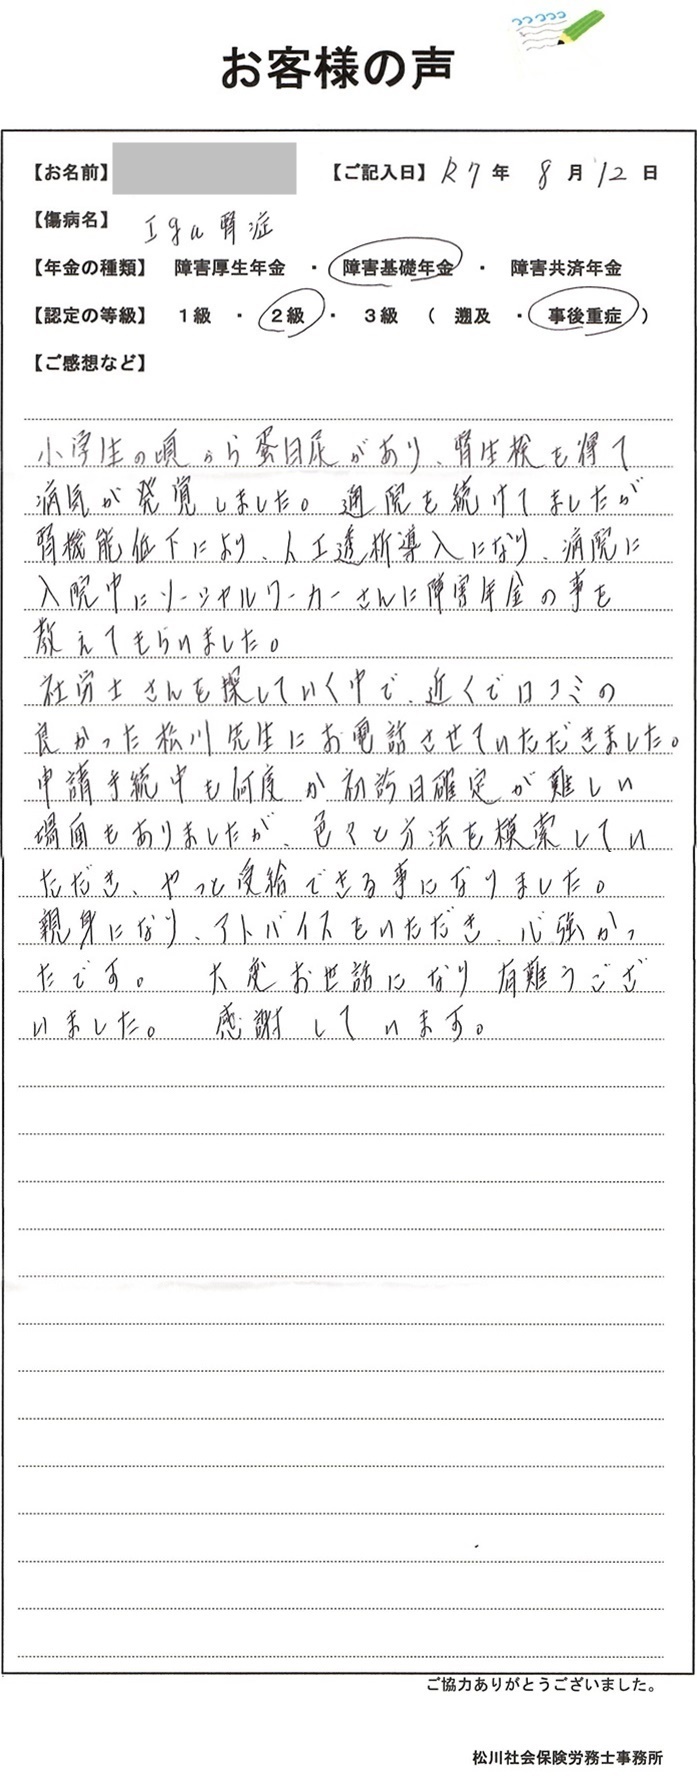 お客様の声
【お名前】 【ご記入日】 R7 年 8 月 12 日
【傷病名】 Iga 腎症
【年金の種類】 障害厚生年金 ・ 障害基礎年金 ・ 障害共済年金
【認定の等級】 1級 ・ 2級 ・ 3級 ( 遡及 ・ 事後重症 )
【ご感想など】
小学生の頃から蛋白尿があり、腎生検を得て
病気が発覚しました。通院を続けてましたが
腎機能低下により、人工透析導入になり、病院に
入院中にソーシャルワーカーさんに障害年金の事を
教えてもらいました。
社労士さんを探していく中で、近くで口コミの
良かった松川先生にお電話させていただきました。
申請手続中も何度か初診日確定が難しい
場面もありましたが、色々と方法を模索してい
ただき、やっと受給できる事になりました。
親身になり、アドバイスをいただき、心強かっ
たです。 大変お世話になり有難うござ
いました。 感謝しています。
ご協力ありがとうございました。
松川社会保険労務士事務所